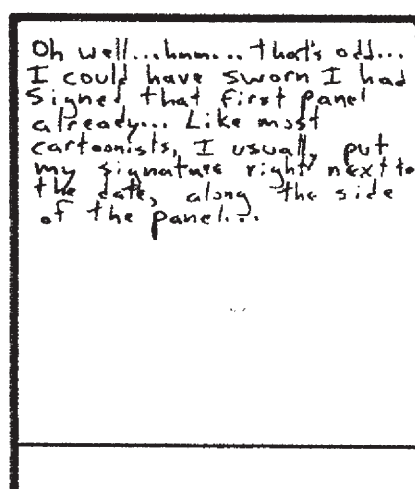 Oh well...hmm... that's odd...
I could have sworn I had
signed that first panel
already... Like most
cartoonists, I usually put
my signature right next to
the date, along the side
of the panel...